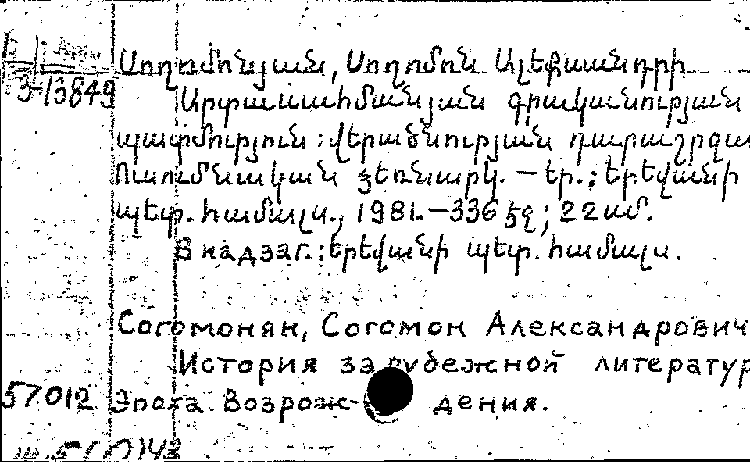 Սողոմոնյան, Սողոմոն Ալեքսանդրի
3-13849
Արտասահմանյան գրականության
պատմություն : Վերածնության դարաշրջա
Ուսումնական ձեռնարկ. – Եր.: Երևանի
պետ. համալս., 1981.–336 էջ; 22 սմ.
В надзаг.: Երևանի պետ. համալս.
Согомонян, Согомон Александрович
История зарубежной литератур
57012 Эпоха Возрож- дения.